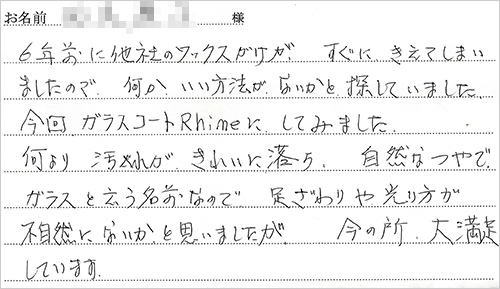 お名前 様
6年前に他社のワックスがけが、すぐに きえてしまい
ましたので、何か いい方法が ないかと 探していました。
今回 ガラスコートRhimeに してみました。
何より 汚れが きれいに落ち、自然なつやで、
ガラスと云う名前なので、足ざわりや光り方が
不自然にないかと思いましたが、今の所、大満足
しています。